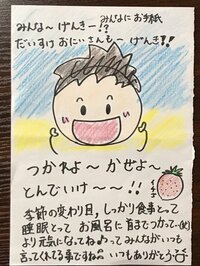 みんなにお手紙
みんな～げんきー!?
だいすけおにいさんもーげんき!!
つかれよ～かぜよ～
とんでいけ～～!!
イチゴ
季節の変わり目，しっかり食事とって
睡眠とってお風呂に首までつかって
より元気になってね♪ってみんながいつも
言ってくれてる事ですねいつもありがとう